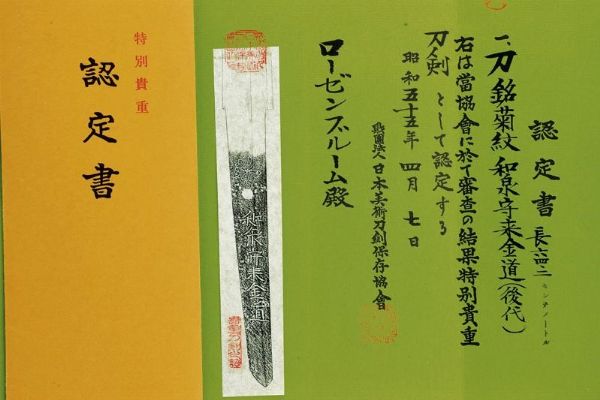 認定書
長六四二 センチメートル
一、刀 銘 菊紋 和泉守来金道(後代)
右は當協會に於て審査の結果特別貴重
刀剣 として認定する
昭和五十五年 四月 七日
財團法人日本美術刀剣保存協會
ローゼンブルーム殿
和泉守来金道
特別貴重
認定書